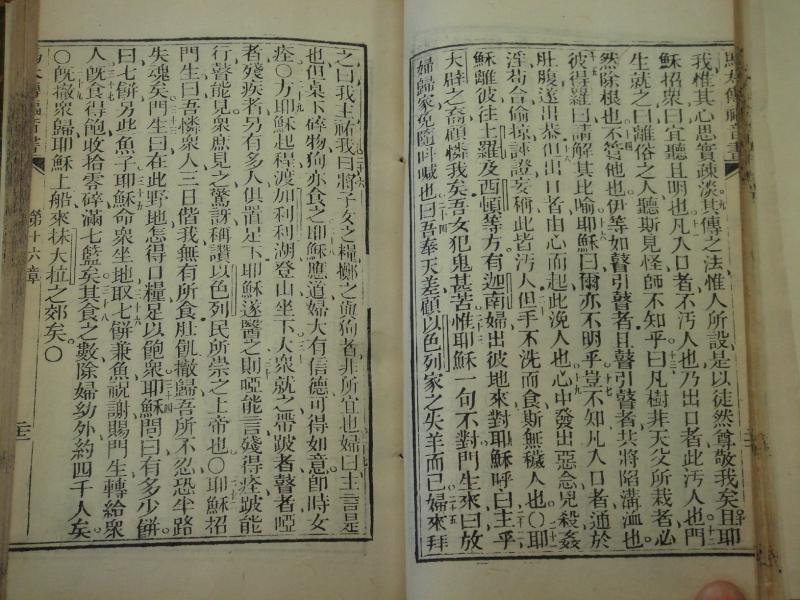 我惟其心思實疎淡其傳之法惟人所設是以徒然尊敬我矣且耶
穌招衆曰宜聽且明也凡入口者不汚人也乃出口者此汚人也門
生就之曰離俗之人聽斯見怪師不知乎曰凡樹非天父所栽者必
然除根也不答他也伊等如瞽引瞽者且瞽引瞽者共將陷溝洫也
彼得羅曰請解其比喻耶穌曰爾亦不明乎豈不知凡入口者通於
肚腹遂出恭但出口者由心而起此浼人也心中發出惡念兇殺姦
淫苟合偷掠誣證妄稱此皆汚人但手不洗而食斯無穢人也〇耶
穌離彼往上羅及西頓等方有迦南婦出彼地來對耶穌呼曰主乎
大辟之裔顧憐我矣吾女犯鬼甚苦惟耶穌一句不對門生來曰放
婦歸家免隨呌喊也曰吾奉天差顧以色列家之失羊而已婦來拜
之曰我主祐我曰將子女之糧擲之與狗者非所宜也婦曰主言是
也但桌下碎物狗亦食之耶穌應道婦大有信德可得如意卽時女
痊〇方耶穌起程渡加利利湖登山坐下大衆就之帶跛者瞽者啞
者殘疾者另有多人俱置足下耶穌遂醫之則啞能言殘得痊跛能
行瞽能見衆庶見之驚訝稱讚以色列民所崇之上帝也〇耶穌招
門生曰吾憐衆人三日偕我無有所食肚飢撤歸吾所不忍恐半路
失魂矣門生曰在此野地怎得口糧足以飽衆耶穌問曰有多少餅
曰七餅另些魚子耶穌命衆坐地取七餅兼魚祝謝賜門生轉給衆
人旣食得飽收拾零碎滿七籃矣其食之數除婦幼外約四千人矣
〇旣撤衆歸耶穌上船來抹大拉之郊矣〇
第十六章